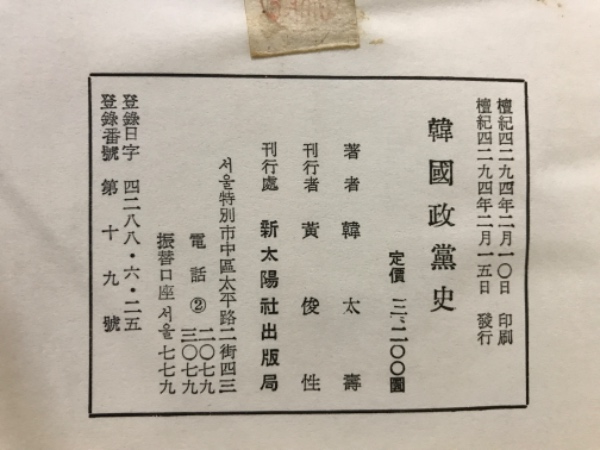 檀紀四二九四年二月一〇日 印刷
檀紀四二九四年二月一五日 發行
韓國政黨史
定價 三、二〇〇圜
著者 韓太壽
刊行者 黃俊性
刊行處 新太陽社出版局
서울特別市中區太平路二街四三
電話 ② 二〇七九
三〇七九
振替口座 서울 七七九
登錄日字 四二八八・六・二五
登錄番號 第十九號